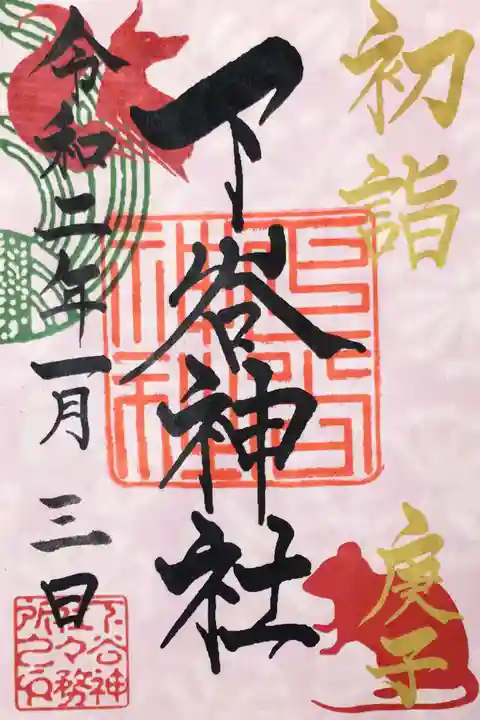 初詣
庚子
下谷神社
下谷神社
令和二年一月三日
下谷神社々務所之印